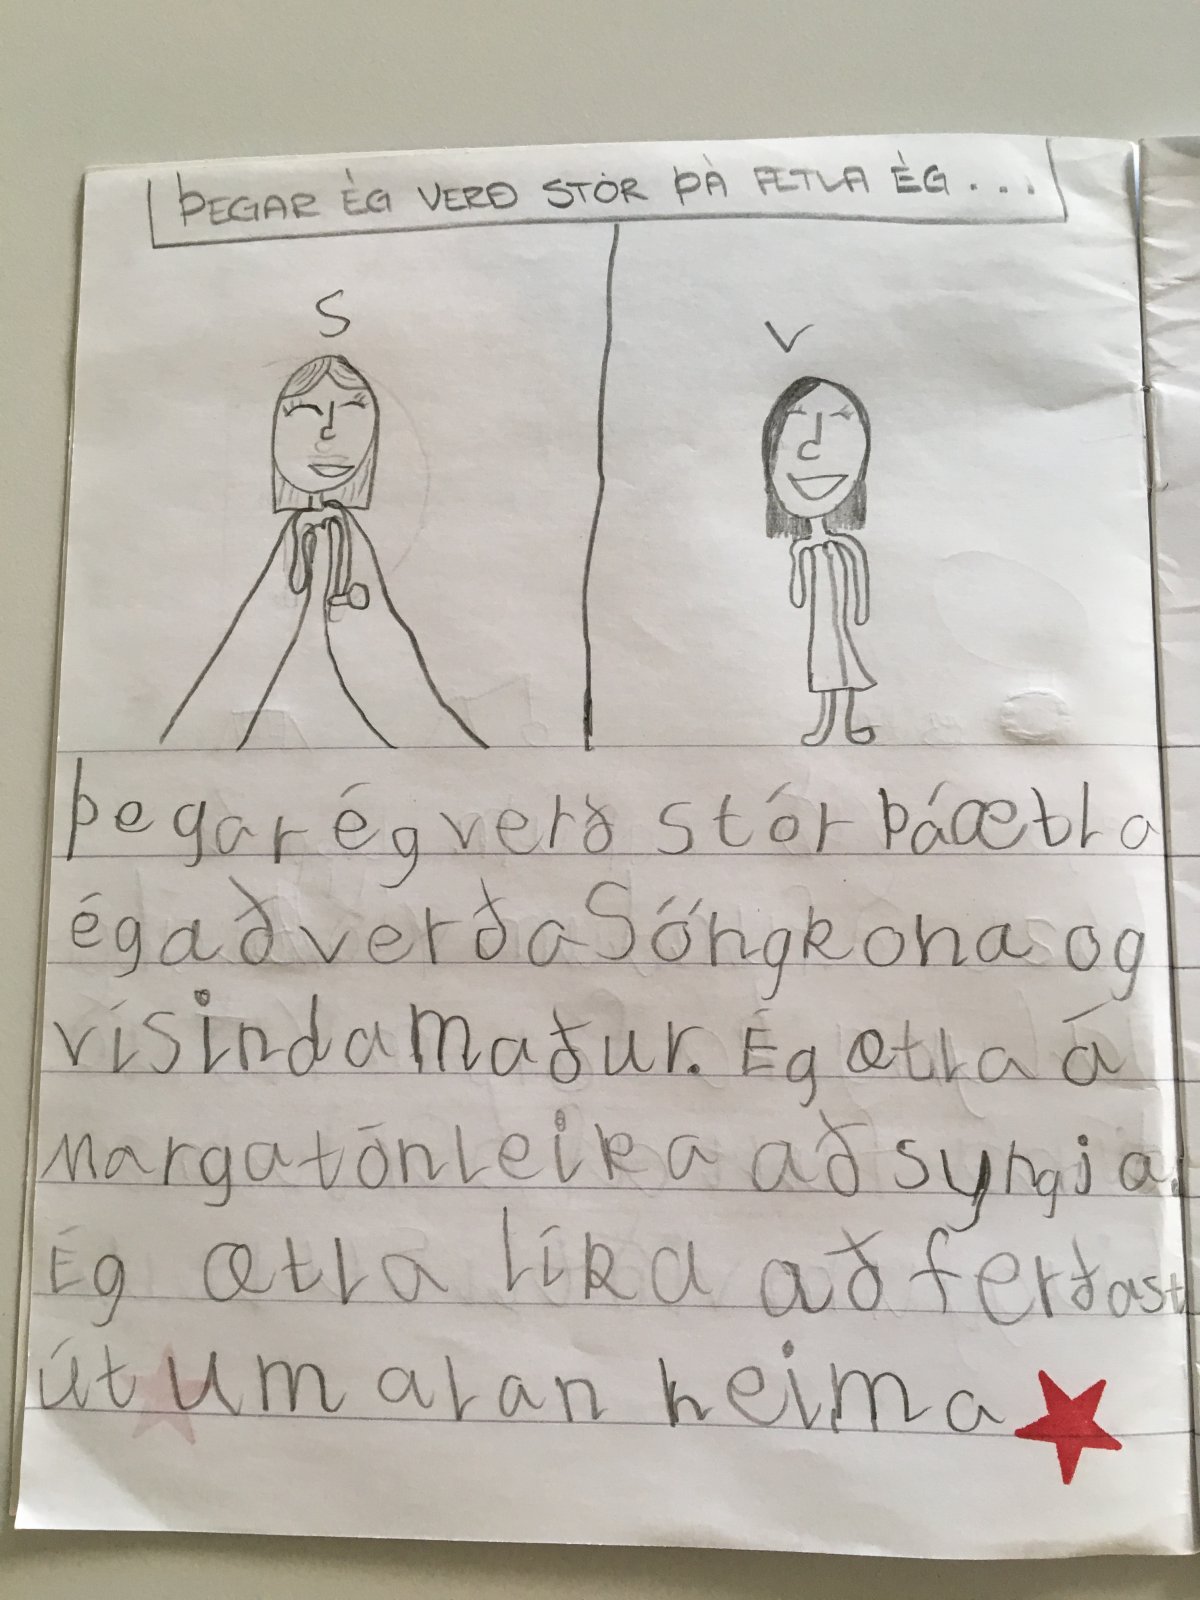 ÞEGAR ÉG VERÐ STÓR ÞÁ ÆTLA ÉG...
S
V
Þegar ég verð stór þá ætla
ég að verða Söngkona og
vísindamaður. Ég ætla á
marga tónleika að syngja.
Ég ætla líka að ferðast
út um alan heima